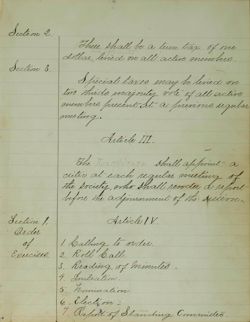 Section 2.
There shall be a term tax of one
dollar, levied on all active members.
Section 3.
Special taxes may be levied on
two thirds majority vote of all active
members present at a previous regular
meeting.
Article III.
The shall appoint a
critic at each regular meeting of
the society who shall render a report
before the adjournment of the session.
Section 1.
Article IV.
Order
of
Exercises
1 Calling to order.
2 Roll Call.
3 Reading of minutes.
4
5 Nomination
6 Election.
7 Report of Standing Committee